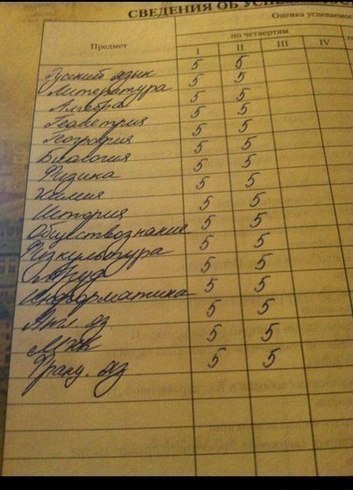 СВЕДЕНИЯ ОБ
Предмет
Оценка успеваемо
по четвертям
I II III IV
Русский язык 5 5
Литература 5 5
Алгебра 5 5
Геометрия 5 5
География 5 5
Биология 5 5
Физика 5 5
Химия 5 5
История 5 5
Обществознание 5 5
Физкультура 5 5
Труд 5 5
Информатика 5 5
Анг. яз 5 5
МХК 5 5
Франц. яз 5 5